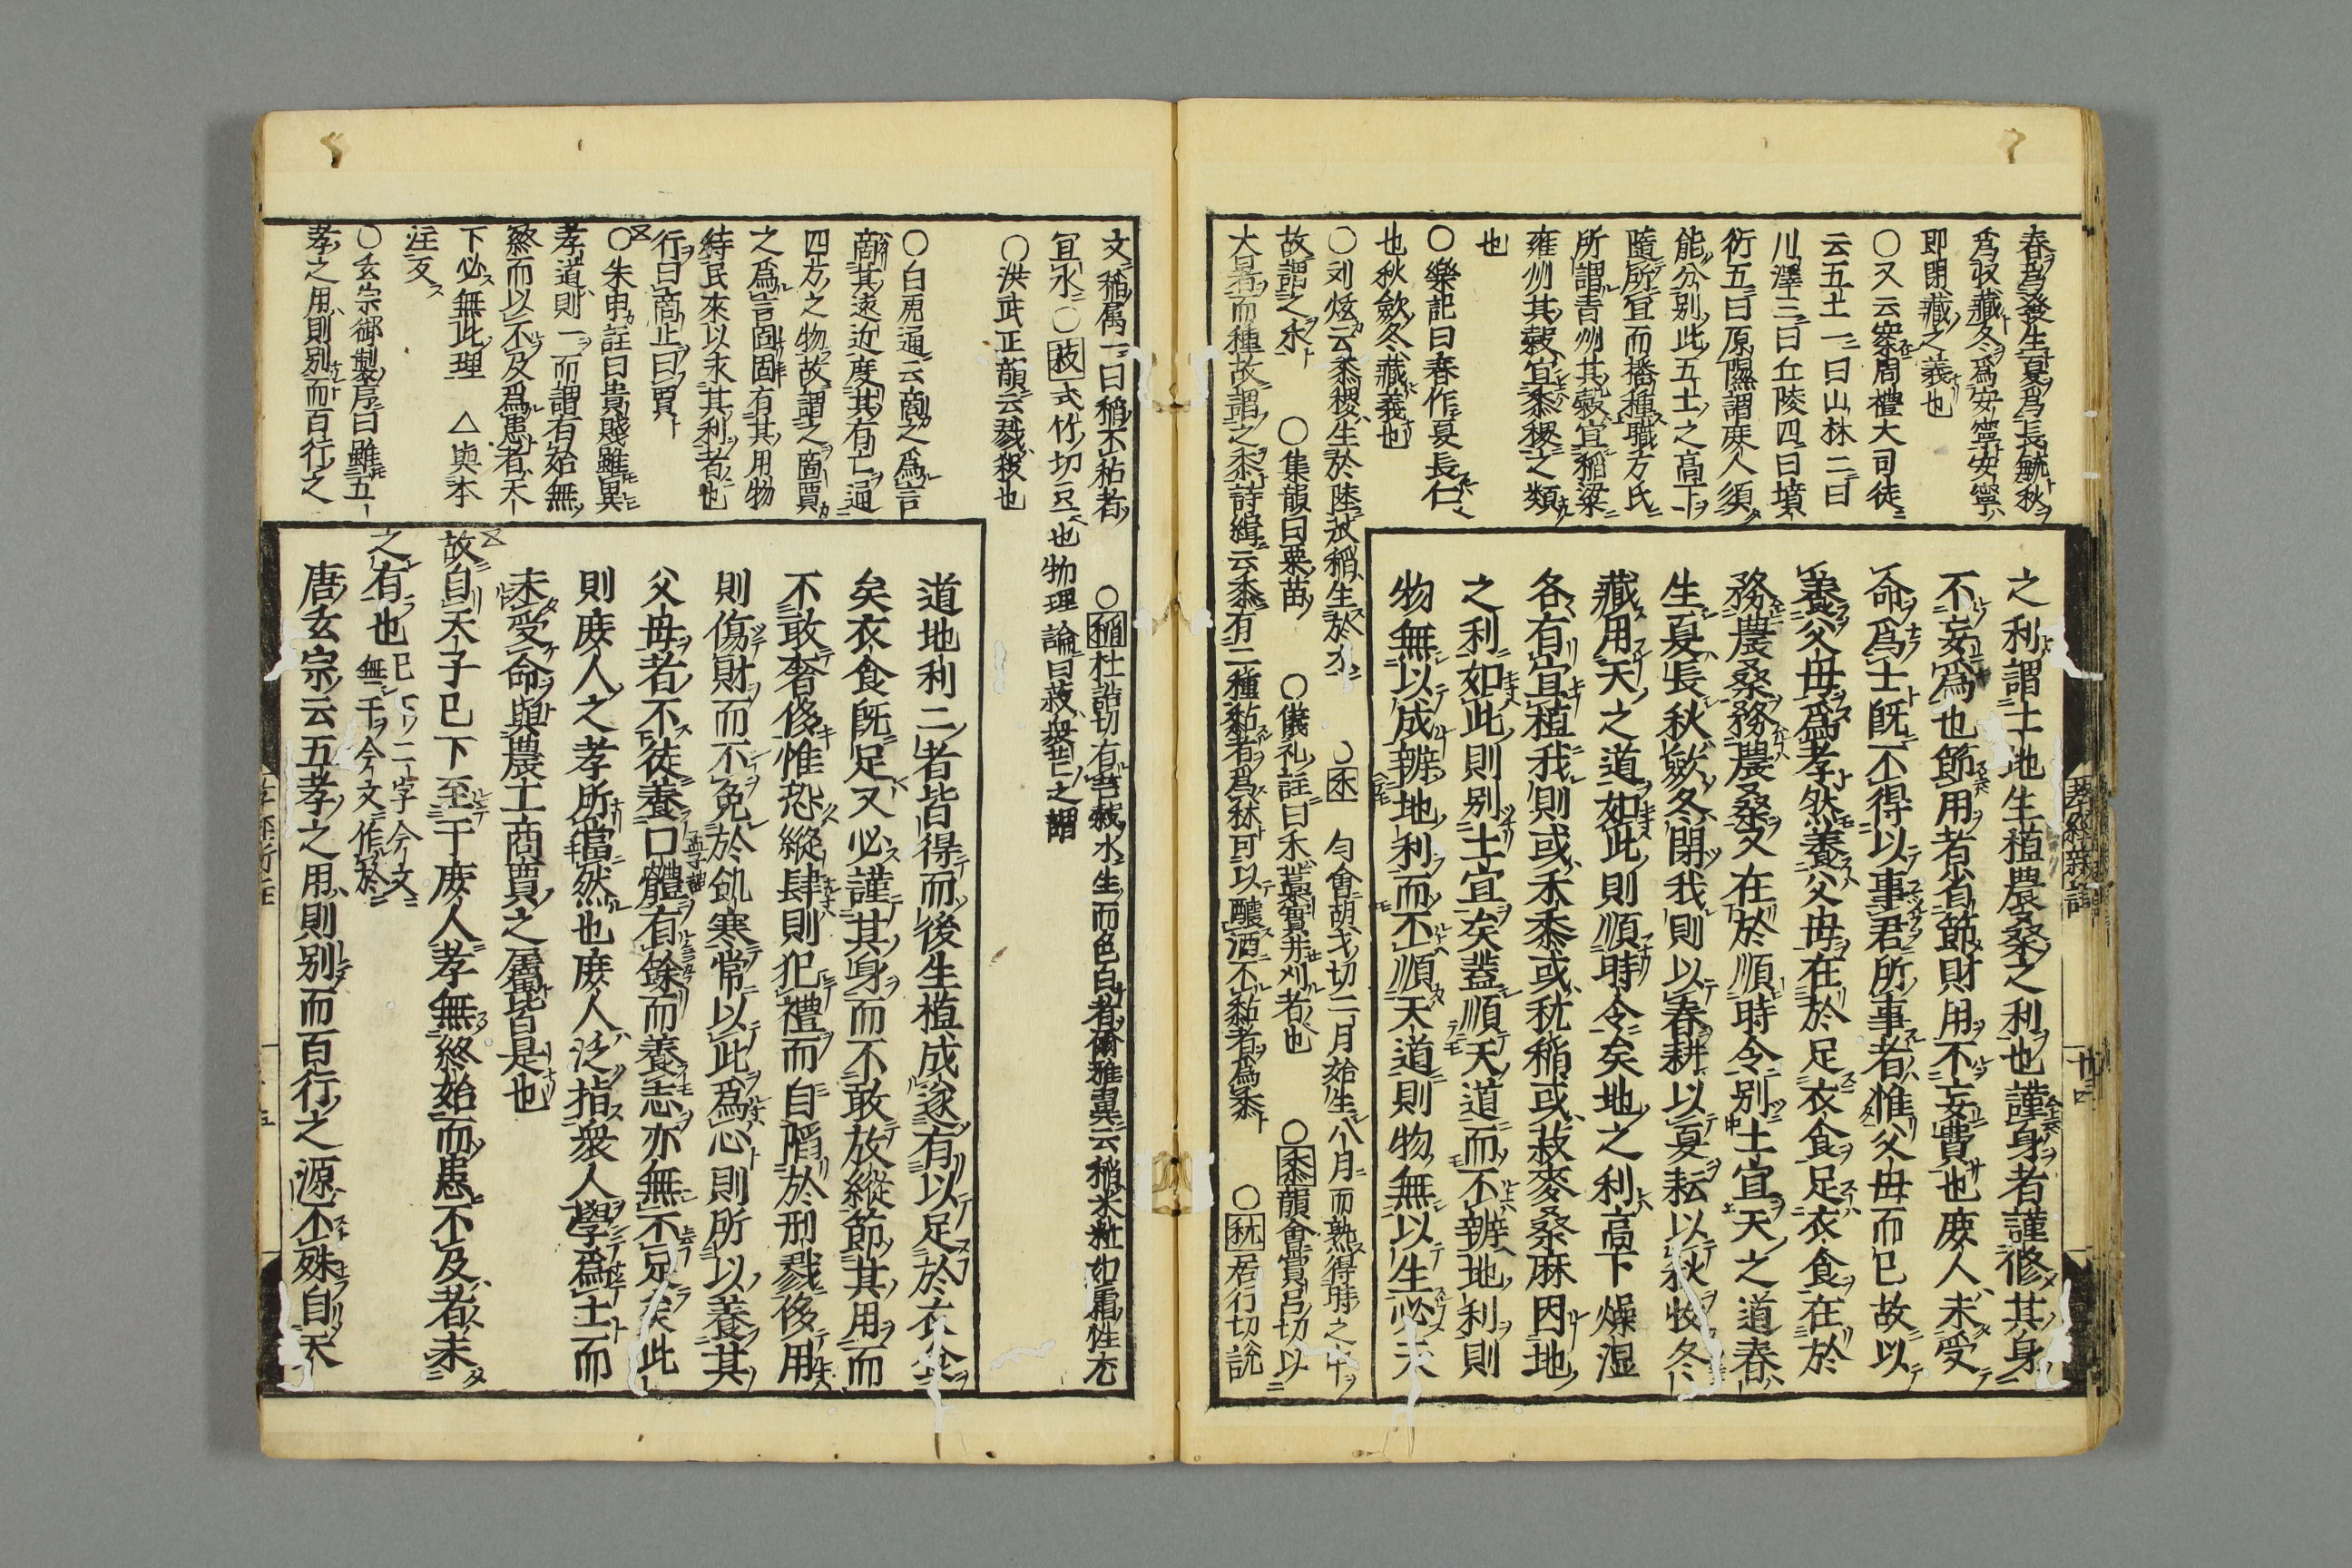 春爲發生夏爲長毓秋
爲収藏冬爲安寧安寧
即閉藏之義也
〇又云案周禮大司徒
云五土一曰山林二曰
川澤三曰丘陵四曰墳
衍五曰原隰謂庶人須
能分別此五土之高下
隨所宜而播種職方氏
所謂青州其穀宜稲粱
雍州其穀宜黍稷之類
也
〇樂記曰春作夏長仁
也秋斂冬藏義也
〇刘炫云黍稷生於陸苽稲生於水 〇禾 勻會胡戈切二月始生八月而熟得時之中
故謂之禾 〇集韻曰粟苗 〇儀礼註曰禾藁實并刈者也 〇黍韻會賞呂切以
大暑而種故謂之黍詩緝云黍有二種黏者爲秫可以釀酒不黏者爲黍 〇秫居行切説
之利謂土地生植農桑之利也謹身者謹修其身
不妄爲也節用者省節財用不妄費也庶人未受
命爲士既不得以事君所事者惟父母而已故以
養父母爲孝然養父母在於足衣食足衣食在於
務農桑務農桑又在於順時令別土宜天之道春
生夏長秋斂冬閉我則以春耕以夏耘以秋收冬
藏用天之道如此則順時令矣地之利高下燥湿
各有宜植我則或禾黍或秔稲或菽麥桑麻因地
之利如此則別土宜矣蓋順天道而不辧地利則
物無以成辧地利而不順天道則物無以生必天
孝經
文稲属一曰稲不秥者 〇稲杜誥切有芒穀水生而色白者爾雅翼云稲米粒如霜性尤
宜水〇菽式竹切豆也物理論曰菽衆芒之謂
〇洪武正韻云戮殺也
〇白虎通云商之爲言
商其遠近度其有亡通
四方之物故謂之商賈
之爲言固固有其用物
待民來以求其利者也
行曰商止曰賈
〇朱申註曰貴賤雖異
孝道則一而謂有始無
終而以不及爲患者天
下必無此理 △與本
注反
〇玄宗御製序曰雖五
孝之用則別而百行之
道地利二者皆得而後生植成遂有以足於衣食
矣衣食既足又必謹其身而不敢放縱節其用而
不敢奢侈惟恐縱肆則犯禮而自陷於刑戮侈用
則傷財而不免於飢寒常以此爲心則所以養其
父母者不徒養口體有餘而養志亦無不足矣此
則庶人之孝所當然也庶人泛指衆人學爲士而
未受命與農工商賈之屬皆是也
故自天子已下至于庶人孝無終始而患不及者未
之有也已下二字今文無于今文作於
唐玄宗云五孝之用則別而百行之源不殊自天